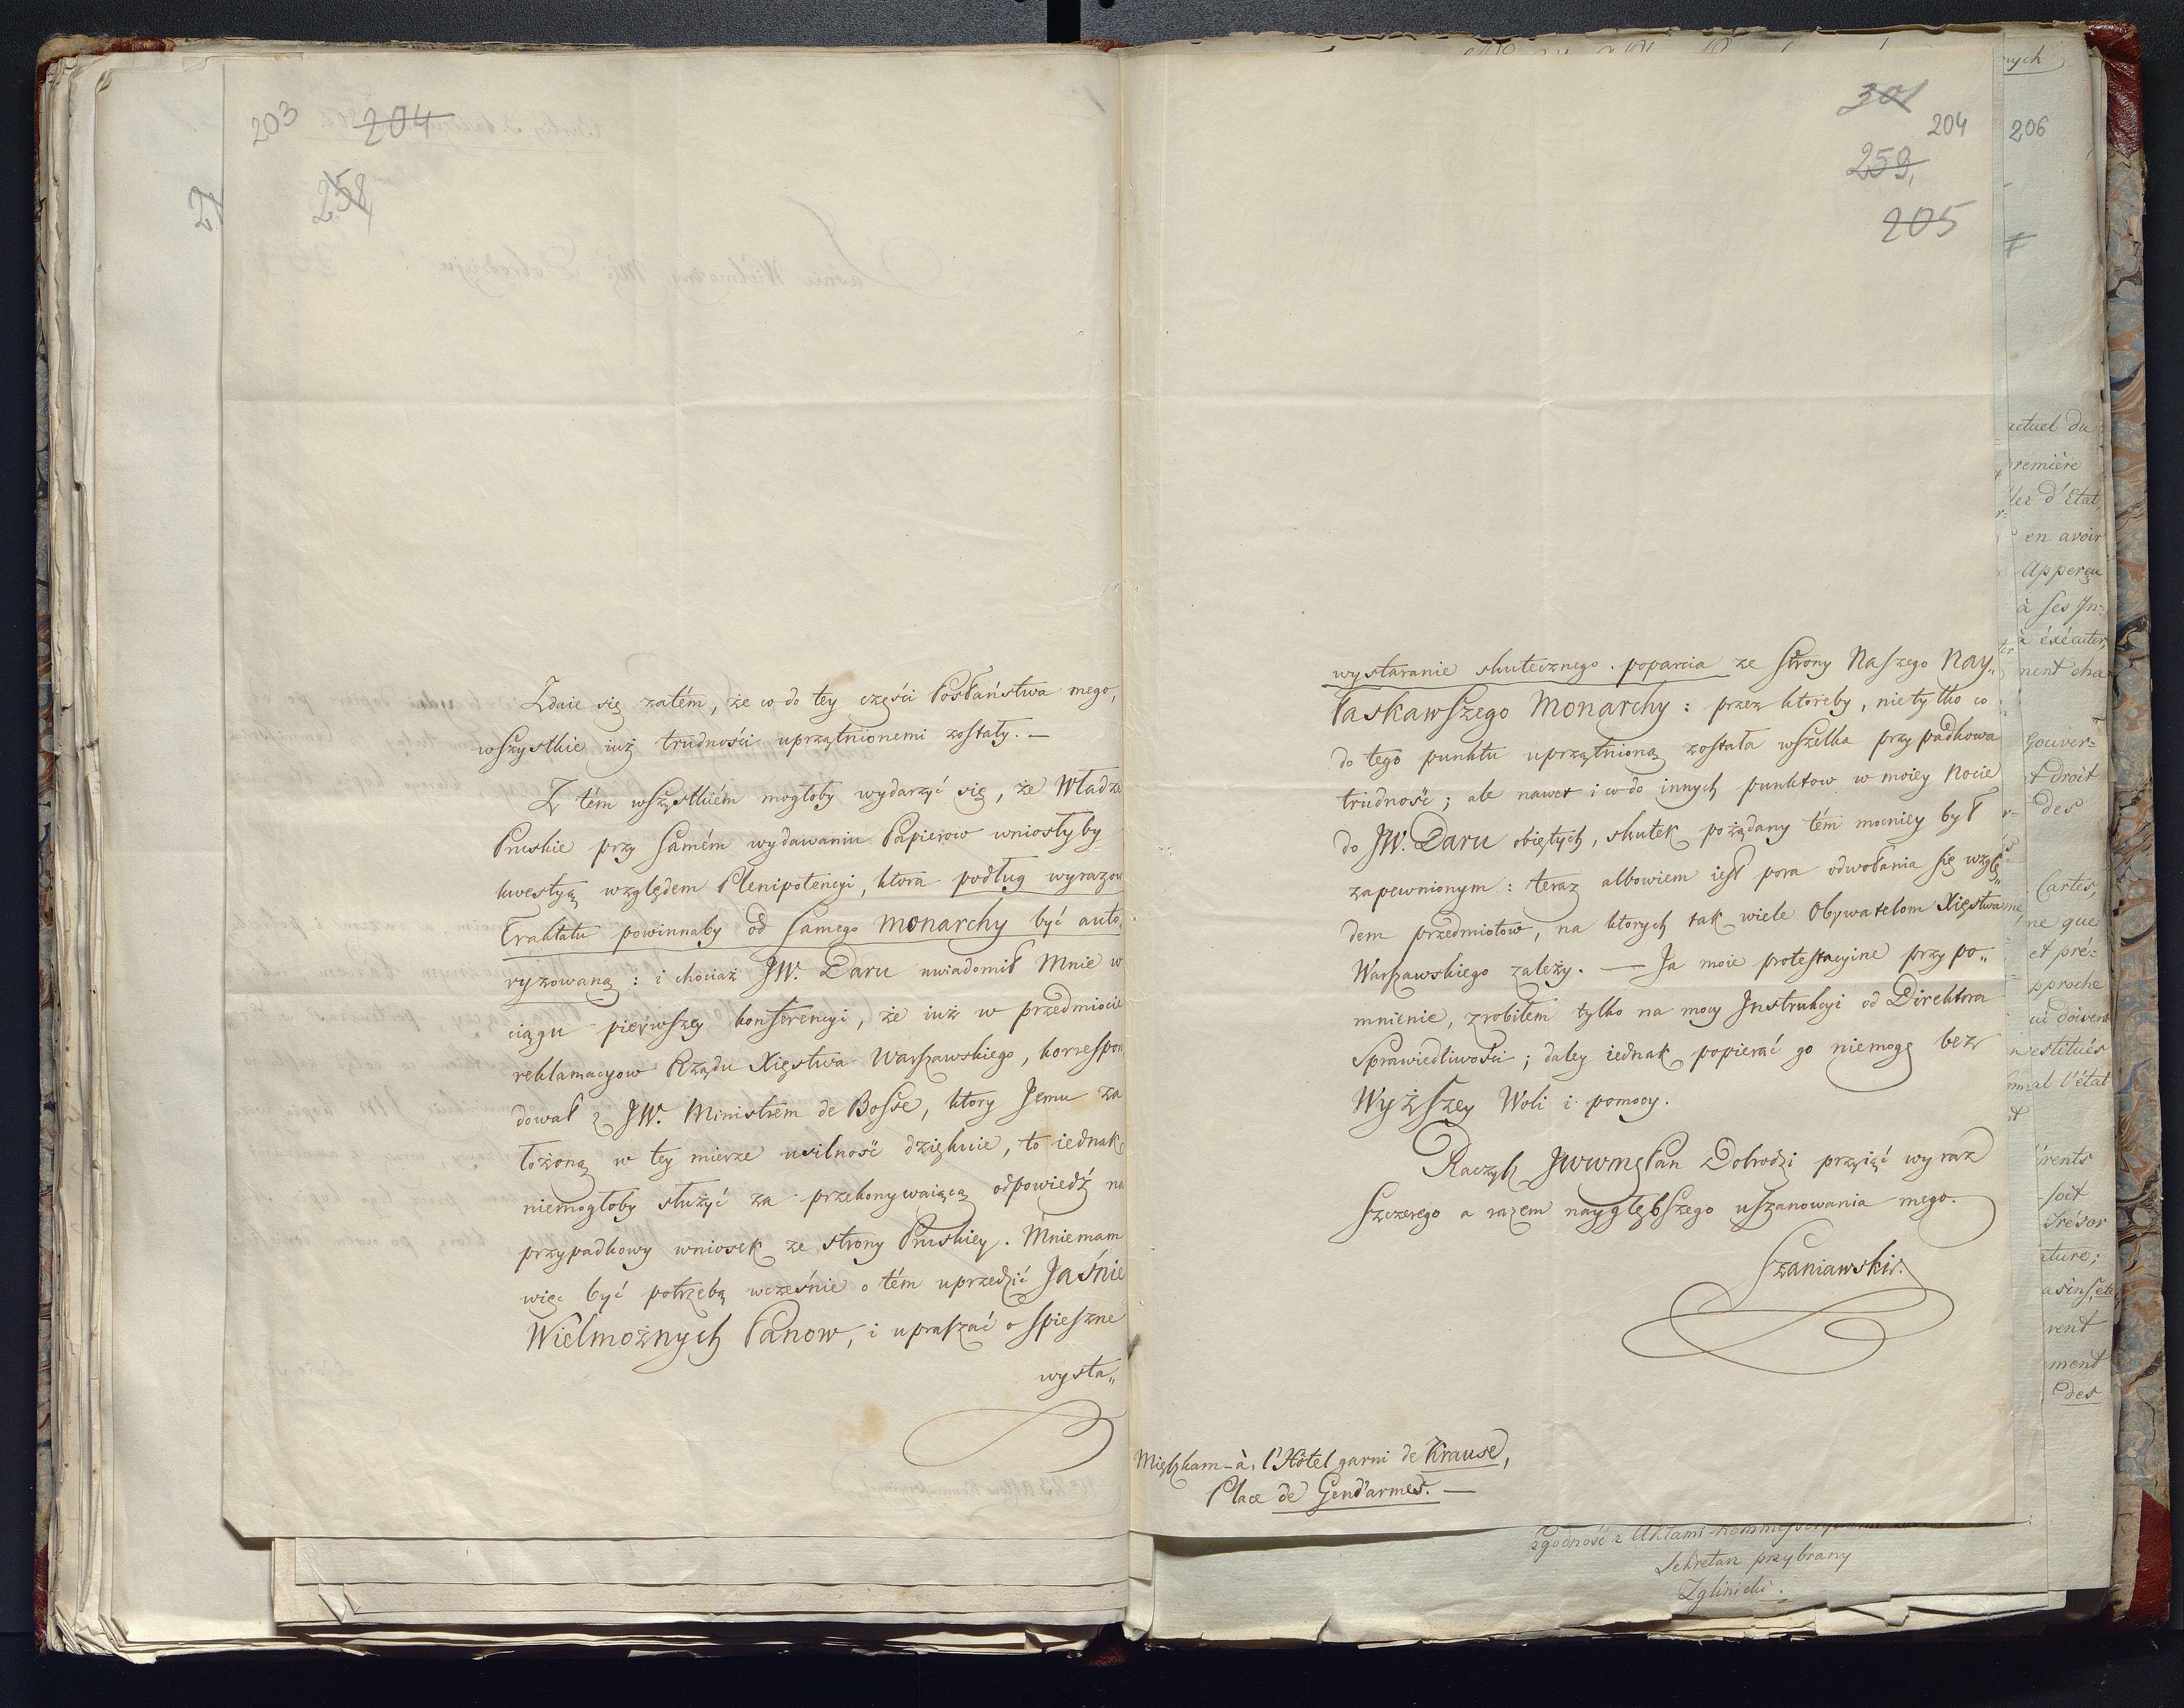 203 204
258
Zdaie się zatém, że co do tey części Posłaństwa mego,
wszystkie iuż trudności uprzątnionemi zostały. —
Z tém wszystkiém mogłoby wydarzyć się, że Władze
Pruskie przy samém wydawaniu Papierow wniosłyby
kwestyą względem Plenipotencyi, ktora podług wyrazow
Traktatu powinnaby od samego Monarchy być auto„
ryzowaną : i chociaż JW. Daru uwiadomił Mnie w
ciągu pierwszey konferencyi, że iuż w przedmiocie
reklamacyow Rządu Xięstwa Warszawskiego, korrespon
dował z JW. Ministrem de Bosse, ktory Jemu za
łożoną w tey mierze usilność dziękuie, to iednak
niemogłoby służyć za przekonywaiącą odpowiedź na
przypadkowy wniosek ze strony Pruskiey. Mniemam
więc być potrzebą wcześnie o tém uprzedzić Jaśnie
Wielmożnych Panow, i upraszać o spieszne
wysta„
301
204
259,
205
wystaranie skutecznego poparcia ze strony Naszego Nay„
łaskawszego Monarchy : przez ktoreby, nietylko co
do tego punktu uprzątnioną została wszelka przypadkowa
trudność ; ale nawet i co do innych punktow w moiey Nocie
do JW. Daru obiętych, skutek pożądany tém mocniey był
zapewnionym : teraz albowiem iest pora odwołania się wzglę„
dem przedmiotow, na ktorych tak wiele Obywatelom Xięstwa
Warszawskiego zależy. — Ja moie protestacyine przypo„
mnienie, zrobiłem tylko na mocy Instrukcyi od Direktora
Sprawiedliwości ; daley iednak popierać go niemogę bez
Wyższey Woli i pomocy.
Raczysz JWWmć Pan Dobrodzi przyiąć wyraz
szczerego a razem naygłębszego uszanowania mego.
Szaniawski.
Mieszkam à l'Hôtel garni de Krause,
Place de Gend'armes. —
Sekretarz przybrany
Zglinicki.
nych
206
actuel du
première
d'Etat,
en avoir
Apperçu
à ses In-
à éxécuter,
nent cha
Gouver=
et droit
des
Cartes,
ne que
et pré-
pproche
ui doivent
nestitués
l'état
rents
soit
Trésor
ture ;
rent
ment
des